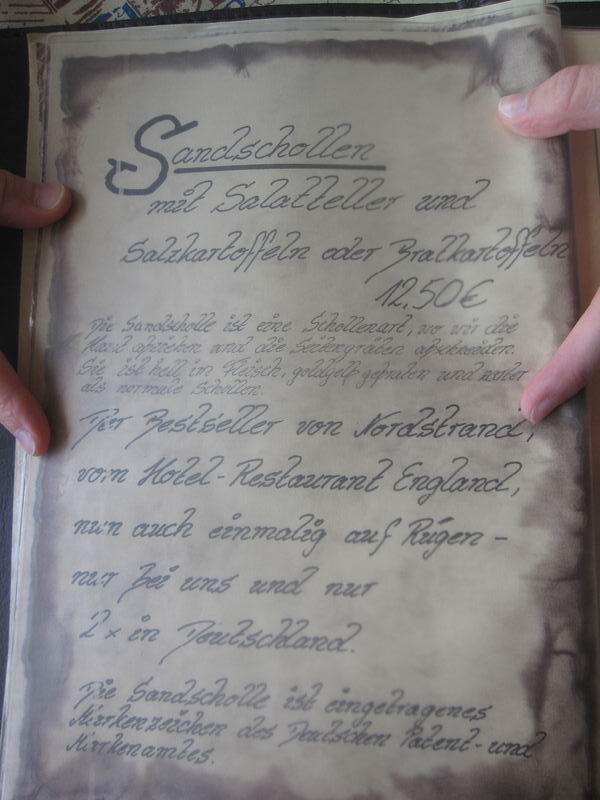 Sandschollen
mit Salatteller und
Salzkartoffeln oder Bratkartoffeln
12,50€
Die Sandscholle ist eine Schollenart, wo wir die
Haut abziehn und die Seitengräten abschneiden.
Sie ist hell im Fleisch, goldgelb gebraten und zarter
als normale Schollen.
Der Bestseller von Nordstrand,
vom Hotel-Restaurant England,
nun auch einmalig auf Rügen -
nur bei uns und nur
2 x in Deutschland.
Die Sandscholle ist eingetragenes
Markenzeichen des Deutschen Patent- und
Markenamtes.